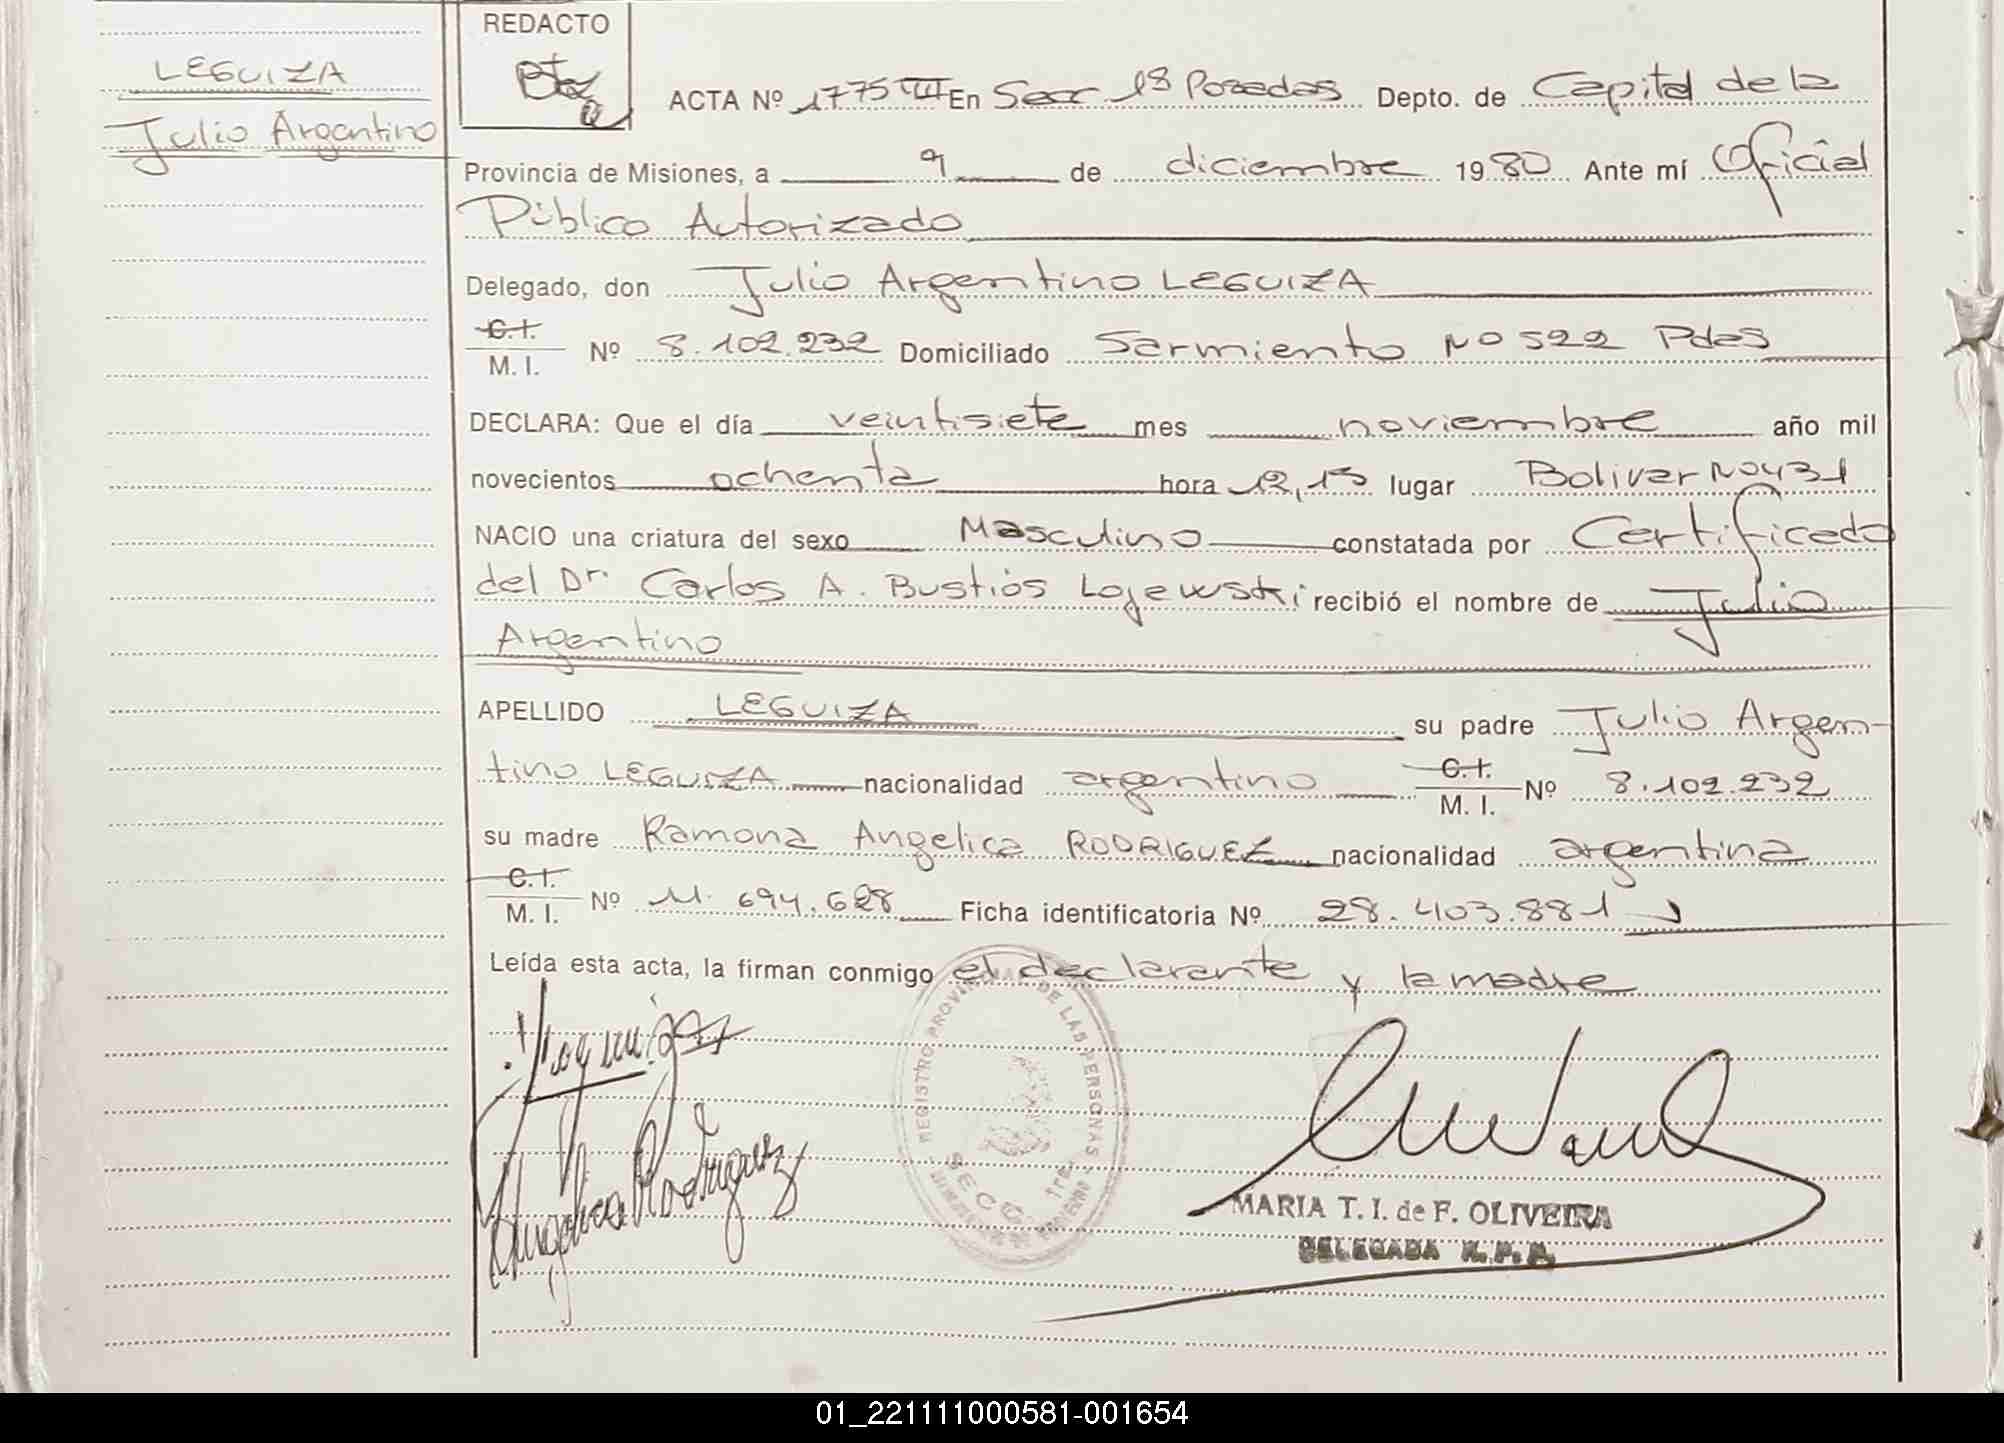 LEGUIZA
Julio Argentino
REDACTO
ACTA Nº 1775 III En Secc 1ª Posadas Depto. de Capital de la
Provincia de Misiones, a 9 de diciembre 1980 Ante mí Oficial
Público Autorizado
Delegado, don Julio Argentino LEGUIZA
C.I. / M. I. Nº 8.102.232 Domiciliado Sarmiento Nº 522 Pdas
DECLARA: Que el día veintisiete mes noviembre año mil
novecientos ochenta hora 12,15 lugar Bolivar Nº431
NACIO una criatura del sexo Masculino constatada por Certificado
del Dr. Carlos A. Bustios Lojewski recibió el nombre de Julio
Argentino
APELLIDO LEGUIZA su padre Julio Argen-
tino LEGUIZA nacionalidad argentino C.I. / M. I. Nº 8.102.232
su madre Ramona Angelica RODRIGUEZ nacionalidad argentina
C.I. / M. I. Nº 11.694.628 Ficha identificatoria Nº 28.403.881
Leída esta acta, la firman conmigo el declarante y la madre
REGISTRO PROVINCIAL DE LAS PERSONAS
SECC. 1ra.
Angelica Rodriguez
MARIA T. I. de F. OLIVEIRA
DELEGADA R.P.P.
01_221111000581-001654